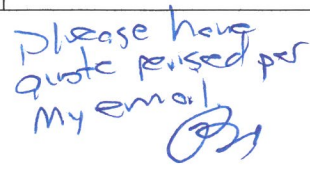 Please have
quote revised per
my email